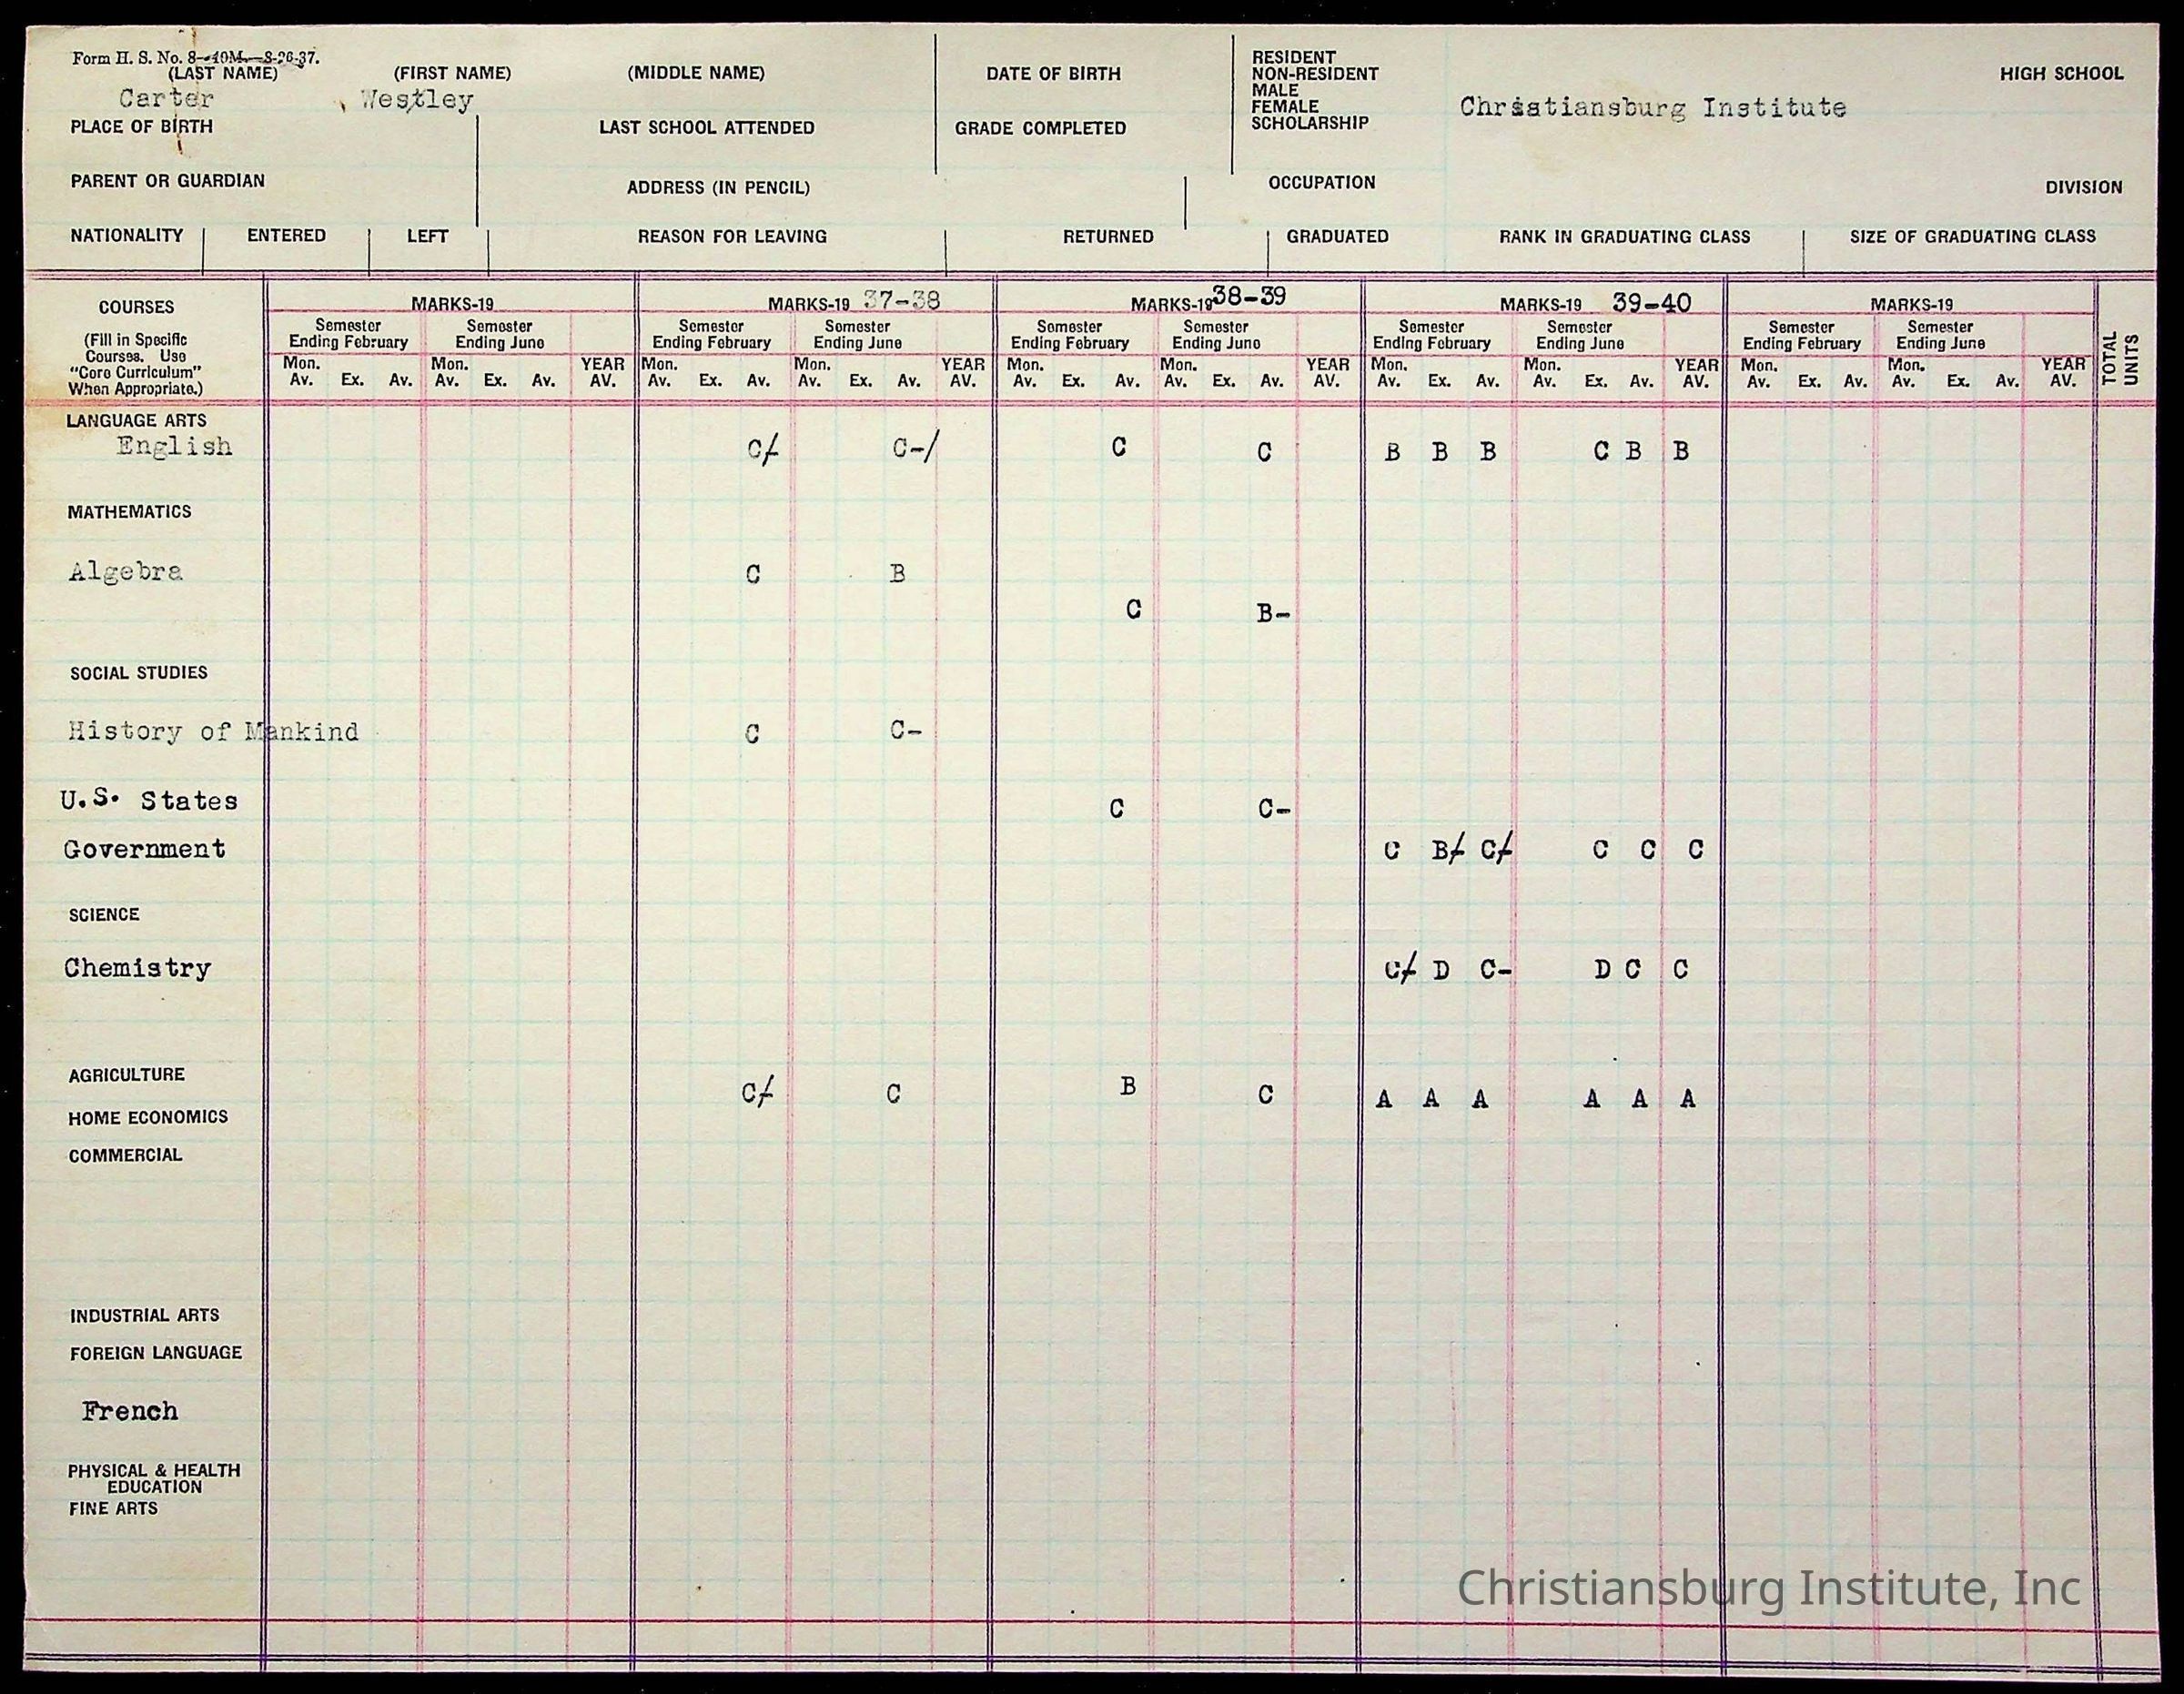 Form H. S. No. 8—40M—8-26-37.
(LAST NAME) (FIRST NAME) (MIDDLE NAME) DATE OF BIRTH RESIDENT HIGH SCHOOL
NON-RESIDENT
MALE
Carter, Westley FEMALE Chrsstiansburg Institute
PLACE OF BIRTH LAST SCHOOL ATTENDED GRADE COMPLETED SCHOLARSHIP
PARENT OR GUARDIAN ADDRESS (IN PENCIL) OCCUPATION DIVISION
NATIONALITY ENTERED LEFT REASON FOR LEAVING RETURNED GRADUATED RANK IN GRADUATING CLASS SIZE OF GRADUATING CLASS
COURSES MARKS-19 MARKS-19 37-38 MARKS-19 38-39 MARKS-19 39-40 MARKS-19 TOTAL UNITS
(Fill in Specific Semester Semester Semester Semester Semester Semester Semester Semester Semester Semester
Courses. Use Ending February Ending June Ending February Ending June Ending February Ending June Ending February Ending June Ending February Ending June
"Core Curriculum" Mon. Mon. YEAR Mon. Mon. YEAR Mon. Mon. YEAR Mon. Mon. YEAR Mon. Mon. YEAR
When Appropriate.) Av. Ex. Av. Av. Ex. Av. AV. Av. Ex. Av. Av. Ex. Av. AV. Av. Ex. Av. Av. Ex. Av. AV. Av. Ex. Av. Av. Ex. Av. AV. Av. Ex. Av. Av. Ex. Av. AV.
LANGUAGE ARTS
English C/- C-/ C C B B B C B B
MATHEMATICS
Algebra C B
C B-
SOCIAL STUDIES
History of Mankind C C-
U.S. States C C-
Government C B/- C/- C C C
SCIENCE
Chemistry C/- D C- D C C
AGRICULTURE C/- C B C A A A A A A
HOME ECONOMICS
COMMERCIAL
INDUSTRIAL ARTS
FOREIGN LANGUAGE
French
PHYSICAL & HEALTH
EDUCATION
FINE ARTS
Christiansburg Institute, Inc